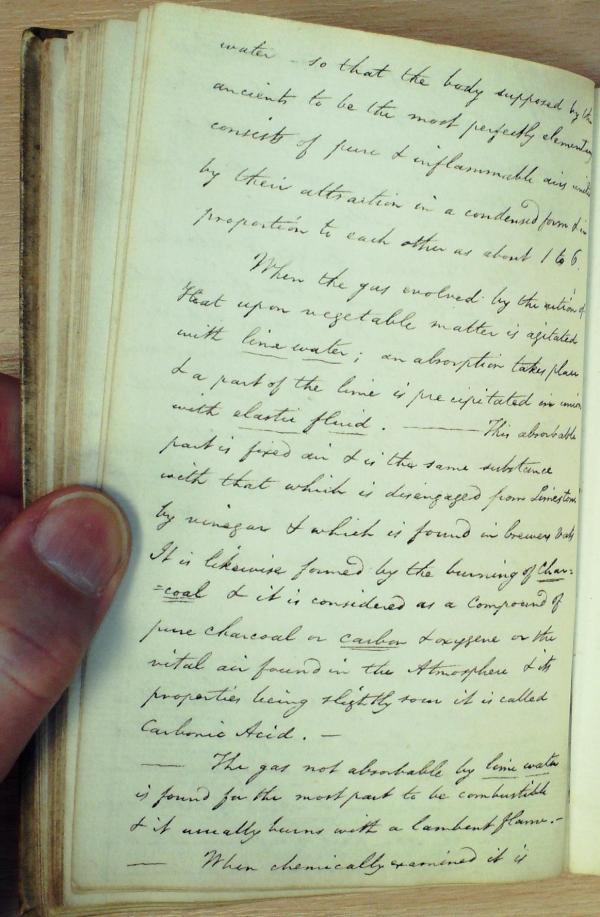 water - so that the body supposed by the
ancients to be the most perfectly elementary
consists of pure & inflammable airs united
by their attraction in a condensed form & in
proportion to each other as about 1 to 6.
When the gas evolved by the action of
Heat upon vegetable matter is agitated
with lime water; an absorption takes place
& a part of the lime is precipitated in union
with elastic fluid. — This absorbable
part is fixed air & is the same substance
with that which is disengaged from Limestone
by vinegar & which is found in brewers Vats
It is likewise formed by the burning of Char=
=coal & it is considered as a Compound of
pure charcoal or carbon & oxygene or the
vital air found in the Atmosphere & its
properties being slightly sour it is called
Carbonic Acid. —
— The gas not absorbable by lime water
is found for the most part to be combustible
& it usually burns with a lambent flame. -
— When chemically examined it is